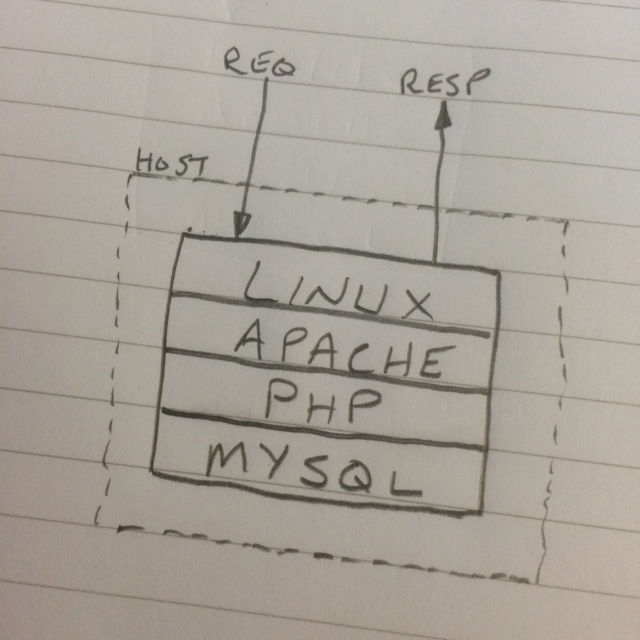 REQ
RESP
HOST
LINUX
APACHE
PHP
MYSQL